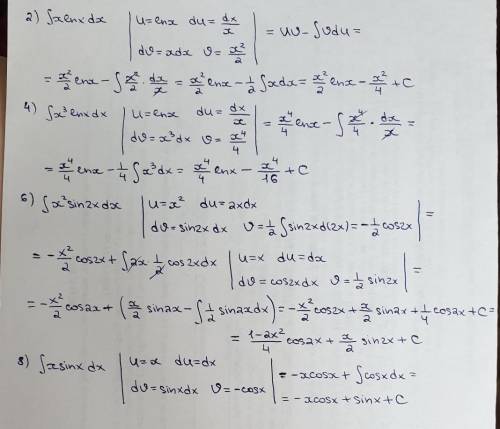 2) ∫xlnxdx | u=lnx du=dx/x | dv=xdx v=x²/2 | = uv-∫vdu=
= x²/2 lnx - ∫x²/2 · dx/x = x²/2 lnx - 1/2 ∫xdx = x²/2 lnx - x²/4 + C
4) ∫x³lnxdx | u=lnx du=dx/x | dv=x³dx v=x⁴/4 | = x⁴/4 lnx - ∫x⁴/4 · dx/x =
= x⁴/4 lnx - 1/4 ∫x³dx = x⁴/4 lnx - x⁴/16 + C
6) ∫x²sin2xdx | u=x² du=2xdx | dv=sin2xdx v=1/2 ∫sin2xd(2x)=-1/2 cos2x | =
= -x²/2 cos2x + ∫2x 1/2 cos2xdx | u=x du=dx | dv=cos2xdx v=1/2 sin2x | =
= -x²/2 cos2x + (x/2 sin2x - ∫1/2 sin2xdx) = -x²/2 cos2x + x/2 sin2x + 1/4 cos2x + C =
= (1-2x²)/4 cos2x + x/2 sin2x + C
8) ∫xsinxdx | u=x du=dx | dv=sinxdx v=-cosx | = -xcosx + ∫cosxdx =
= -xcosx + sinx + C